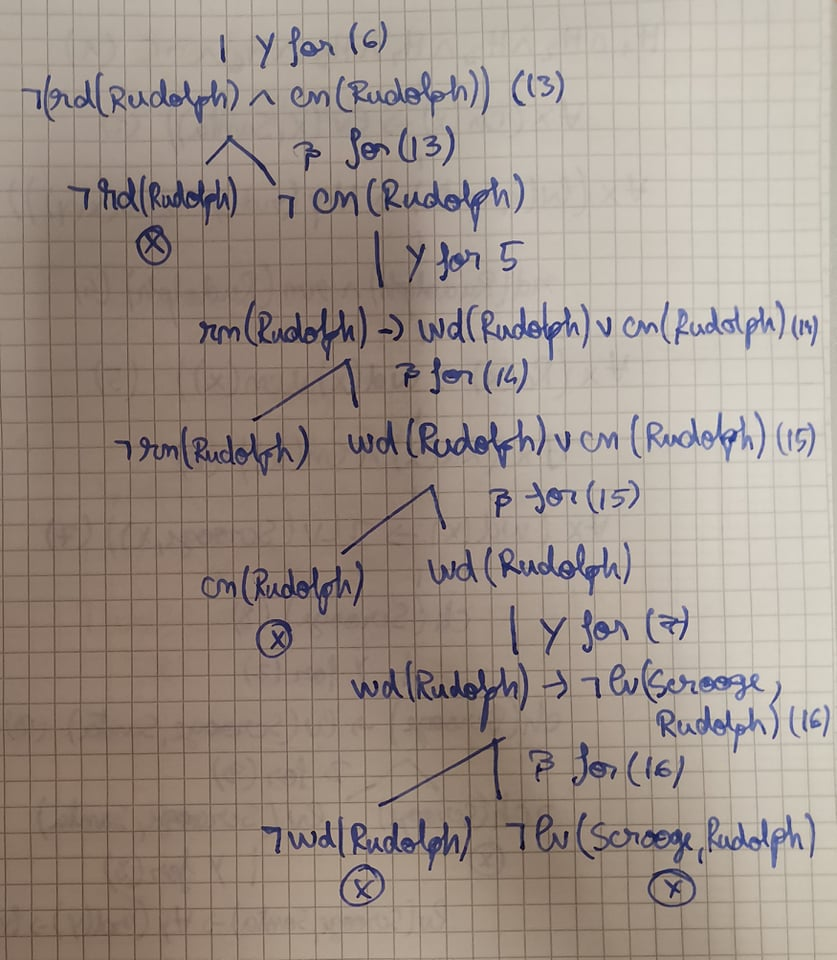 | γ for (6)
¬(rd(Rudolph) ∧ cn(Rudolph)) (13)
β for (13)
¬rd(Rudolph) ¬cn(Rudolph)
ⓧ
| γ for 5
rm(Rudolph) → wd(Rudolph) ∨ cn(Rudolph) (14)
β for (14)
¬rm(Rudolph) wd(Rudolph) ∨ cn(Rudolph) (15)
β for (15)
cn(Rudolph) wd(Rudolph)
ⓧ
| γ for (7)
wd(Rudolph) → ¬lv(Scrooge,
Rudolph) (16)
β for (16)
¬wd(Rudolph) ¬lv(Scrooge, Rudolph)
ⓧ ⓧ